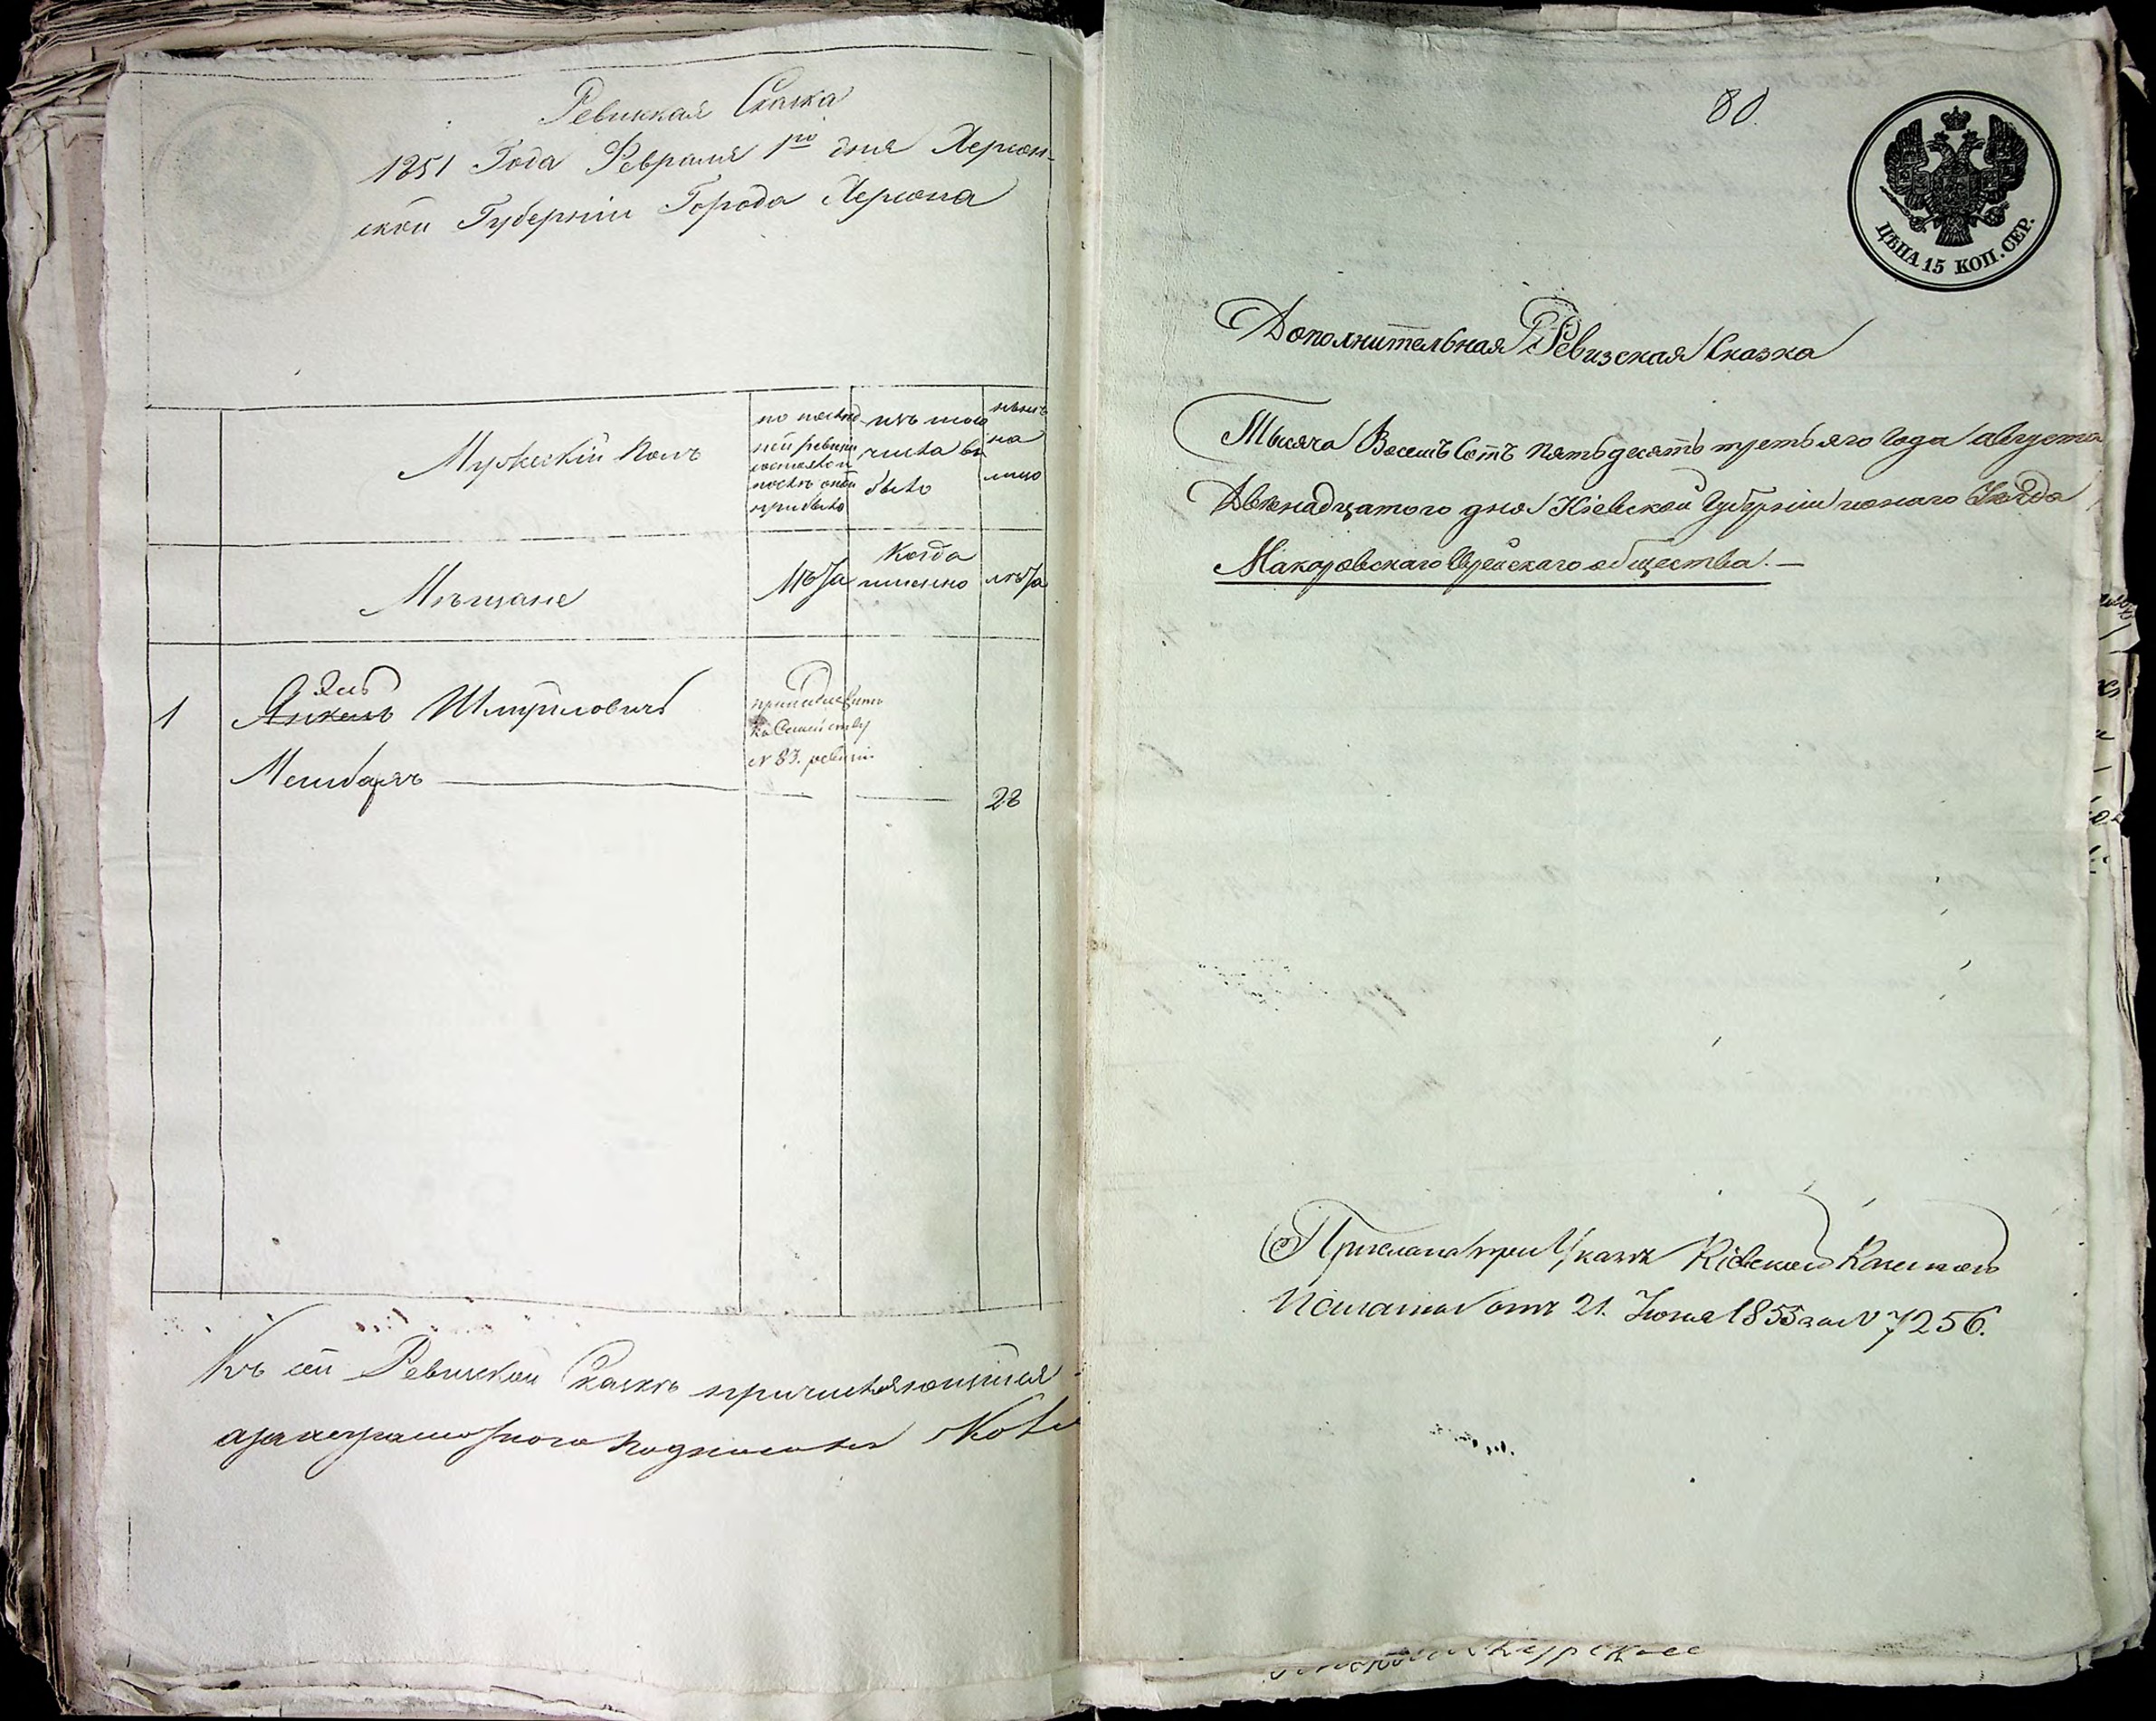 Ревизкая Сказка
1851 Года Февраля 1го дня Херсон-
ской Губерніи Города Херсона
Мужескій Полъ
по послед-
ней ревизіи
состояло и
после оной
прибыло
изъ того
числа вы
было
нынѣ
на
лицо
Мѣщане
лѣта
Когда
именно
лѣта
1
Янкель
Шмуиловичъ
принадлежитъ
къ Семейству
№ 83. ревизіи
28
Къ сей Ревизской Сказкѣ
80.
ЦѢНА 15 КОП. СЕР.
Дополнительная Ревизская Сказка
Тысяча Восемь Сотъ Пятьдесятъ третьяго Года августа
Двѣнадцатого дня Кіевской Губерніи Уѣзда
Макаровскаго Еврейскаго общества. —
Прислана при Указѣ Кіевской Казенной
Палаты отъ 21. Іюня 1855 за № 7256.